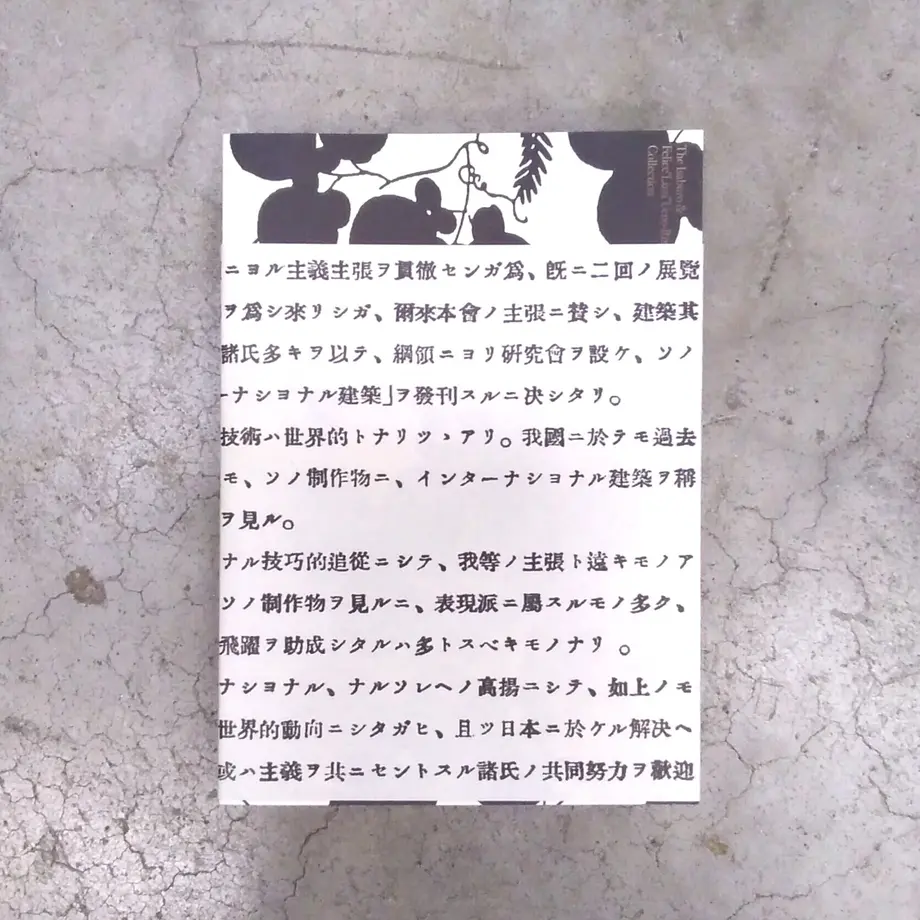 The Isaburo &
Felice "Lizzi" Ueno-Rix
Collection
ニヨル主義主張ヲ貫徹センガ爲、旣ニ二回ノ展覽
ヲ爲シ來リシガ、爾來本會ノ主張ニ賛シ、建築其
諸氏多キヲ以テ、綱領ニヨリ硏究會ヲ設ケ、ソノ
ーナシヨナル建築」ヲ發刊スルニ决シタリ。
技術ハ世界的トナリツヽアリ。我國ニ於テモ過去
モ、ソノ制作物ニ、インターナシヨナル建築ヲ稱
ヲ見ル。
ナル技巧的追從ニシテ、我等ノ主張ト遠キモノア
ソノ制作物ヲ見ルニ、表現派ニ屬スルモノ多ク、
飛躍ヲ助成シタルハ多トスベキモノナリ。
ナシヨナル、ナルソレヘノ高揚ニシテ、如上ノモ
世界的動向ニシタガヒ、且ツ日本ニ於ケル解决ヘ
或ハ主義ヲ共ニセントスル諸氏ノ共同努力ヲ歡迎